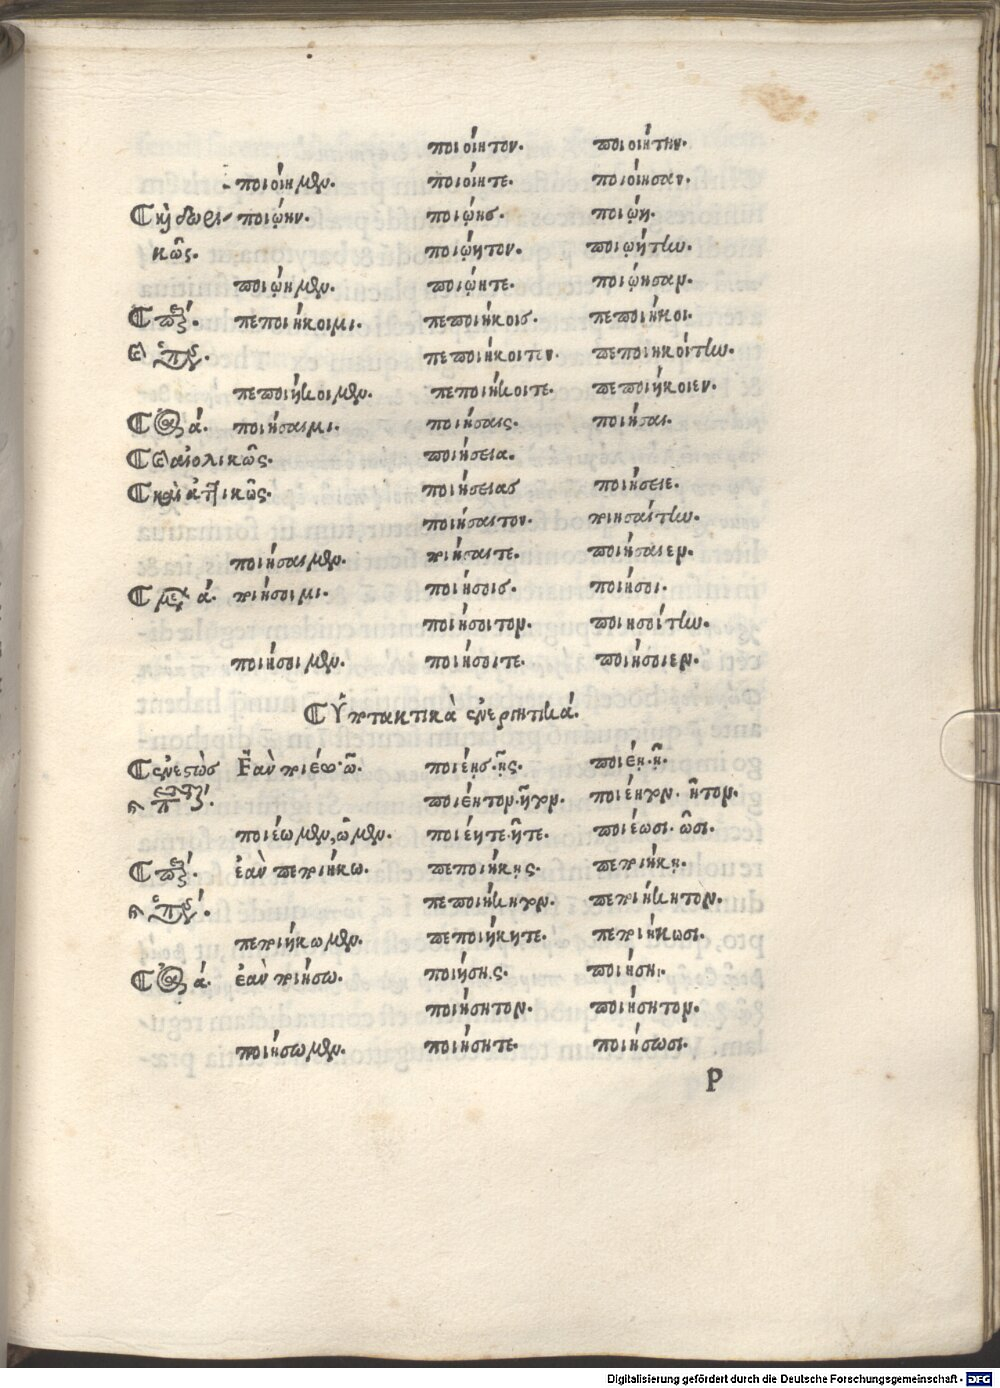 ποιοίητον. ποιοιήτην.
ποιοίημεν. ποιοίητε. ποιοίησαν.
καὶ δωρι- ποιῴην. ποιῴης. ποιῴη.
κῶς. ποιῴητον. ποιῳήτην.
ποιῴημεν. ποιῴητε. ποιῴησαν.
πεποιήκοιμι. πεποιήκοις. πεποιήκοι.
πεποιήκοιτον. πεποιηκοίτην.
πεποιήκοιμεν. πεποιήκοιτε. πεποιήκοιεν.
ποιήσαιμι. ποιήσαις. ποιήσαι.
αἰολικῶς. ποιήσεια.
καὶ ἀττικῶς. ποιήσειας ποιήσειε.
ποιήσαιτον. ποιησαίτην.
ποιήσαιμεν. ποιήσαιτε. ποιήσαιεν.
ποιήσοιμι. ποιήσοις. ποιήσοι.
ποιήσοιτον. ποιησοίτην.
ποιήσοιμεν. ποιήσοιτε. ποιήσοιεν.
Ὑποτακτικὰ ἐνεργητικά.
ἐνεστὼς Ἐὰν ποιέω·ῶ. ποιέῃς·ῇς. ποιέῃ·ῇ.
ποιέητον·ῆτον. ποιέητον·ῆτον.
ποιέωμεν,ῶμεν. ποιέητε·ῆτε. ποιέωσι·ῶσι.
ἐὰν πεποιήκω. πεποιήκῃς. πεποιήκῃ.
πεποιήκητον. πεποιήκητον.
πεποιήκωμεν. πεποιήκητε. πεποιήκωσι.
ἐὰν ποιήσω. ποιήσῃς. ποιήσῃ.
ποιήσητον. ποιήσητον.
ποιήσωμεν. ποιήσητε. ποιήσωσι.
P
Digitalisierung gefördert durch die Deutsche Forschungsgemeinschaft - DFG